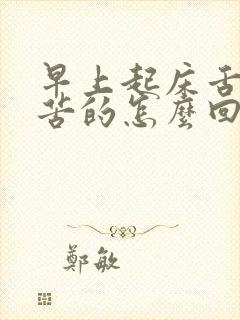 早上起床舌
苦的怎麼回
鄭敏